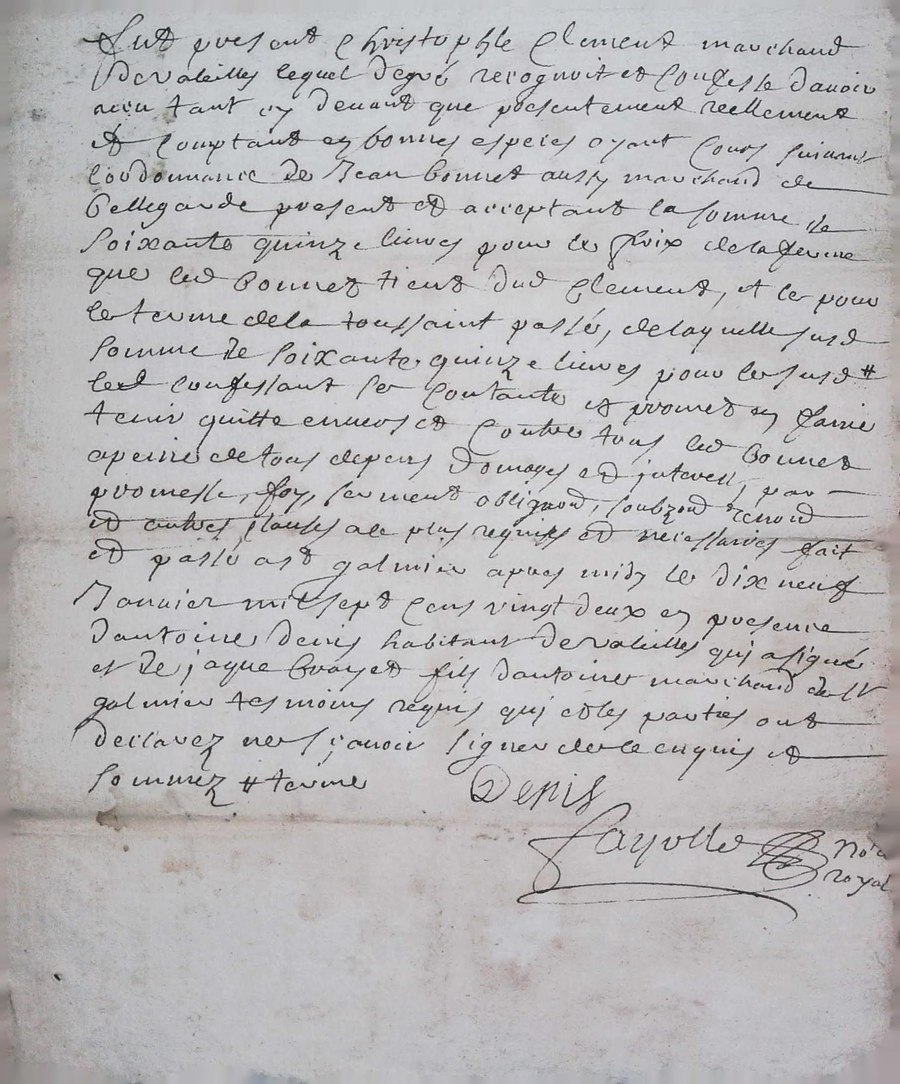 Fut present Christophle Clement marchand
de valeilles lequel de gré recognoit et confesse davoir
receu tant cy devant que presentement reellement
et comptant en bonnes especes ayant cours suivant
lordonnance de Jean bonnet aussy marchand de
bellegarde present et acceptant la somme de
soixante quinze livres pour le prix de la ferme
que led bonnet tient dud Clement, et ce pour
le terme de la toussaint passé, de laquelle susd
somme de soixante quinze livres pour le susd #
led confessant se contante et promet en faire
tenir quitte envers et contre tous led bonnet
a peine de tous depens domages et interest, par
promesse, foy, serment obligaond, soubzond renond
et autres clauses a ce plus requises et necessaires fait
et passé a st galmier apres midy le dix neuf
Janvier mil sept cens vingt deux en presence
dantoine denis habitant de valeilles qui a signé
et de jaque brayet fils dantoine marchand de st
galmier tesmoins requis qui et les parties ont
declarez ne sçavoir signer de ce enquis et
sommez # terme
Denis
Fayolle
no.re
royal